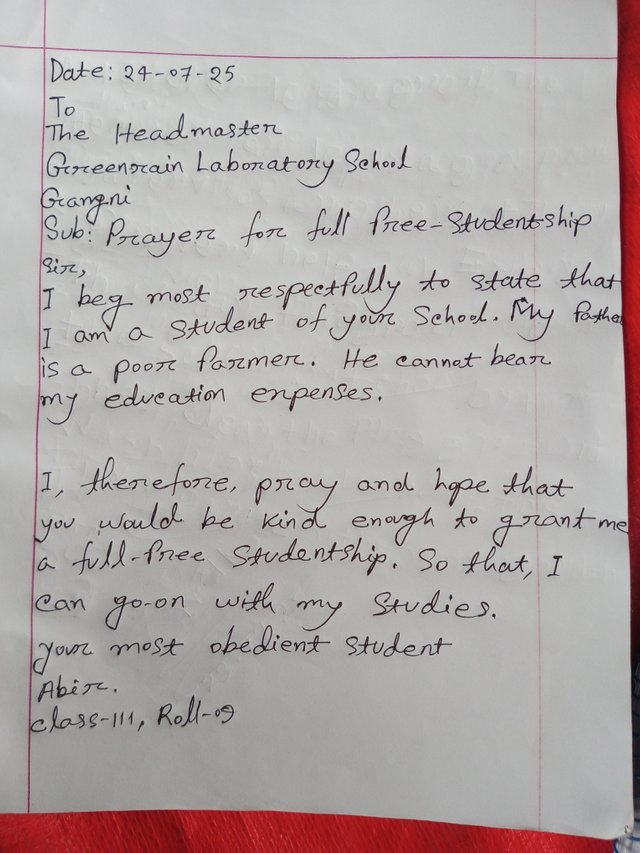 Date: 24-07-25
To
The Headmaster
Greenrain Laboratory School
Gangni
Sub: Prayer for full free-Studentship
Sir,
I beg most respectfully to state that
I am a student of your School. My father
is a poor farmer. He cannot bear
my education expenses.
I, therefore, pray and hope that
you would be kind enough to grant me
a full-free Studentship. So that, I
can go-on with my Studies.
your most obedient student
Abir.
Class-111, Roll-09